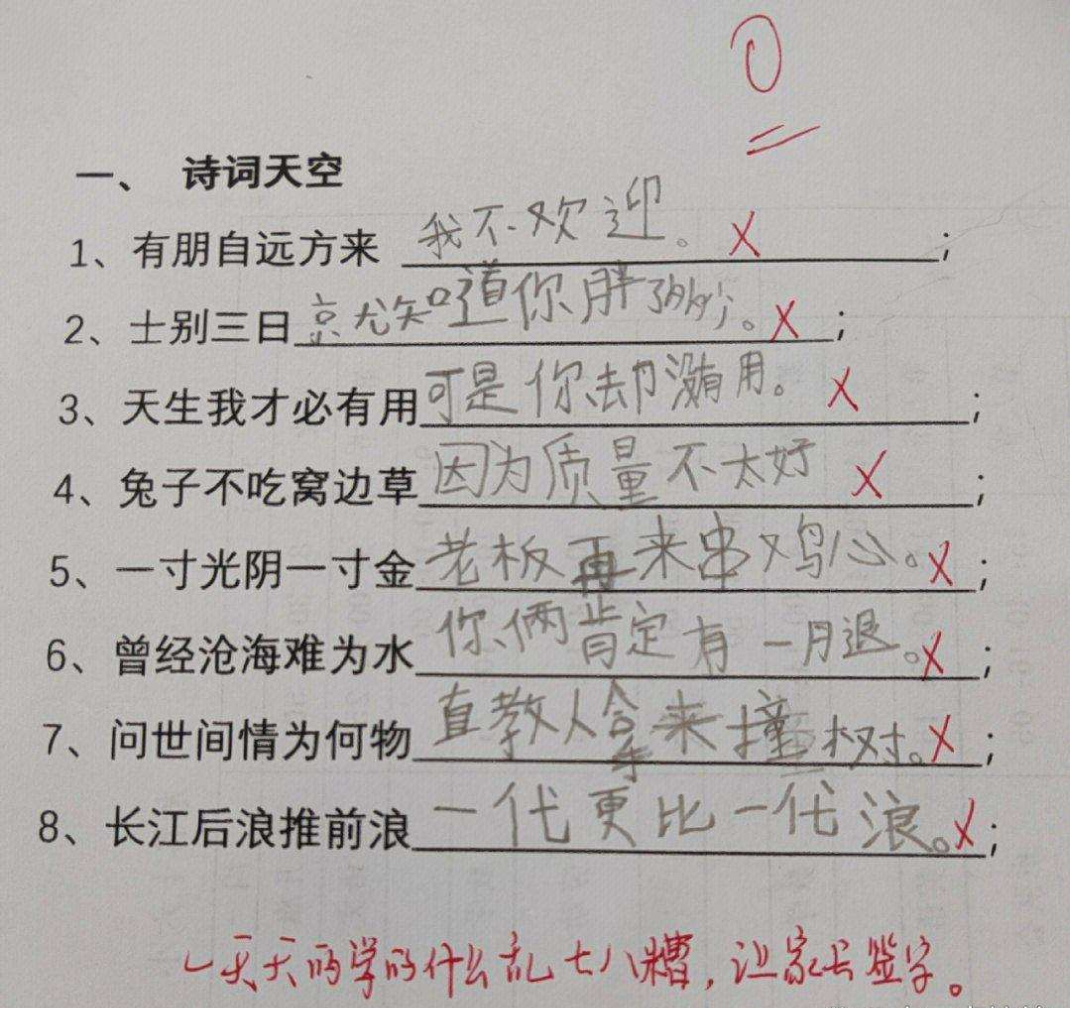 0
一、 诗词天空
1、有朋自远方来 我不欢迎。 ;
2、士别三日就知道你胖了哟。 ;
3、天生我才必有用可是你却没有用。 ;
4、兔子不吃窝边草因为质量不太好 ;
5、一寸光阴一寸金老板再来串鸡心。 ;
6、曾经沧海难为水你俩肯定有一月退。 ;
7、问世间情为何物直教人拿来撞树。 ;
8、长江后浪推前浪一代更比一代浪。 ;
一天天的学的什么乱七八糟,让家长签字。